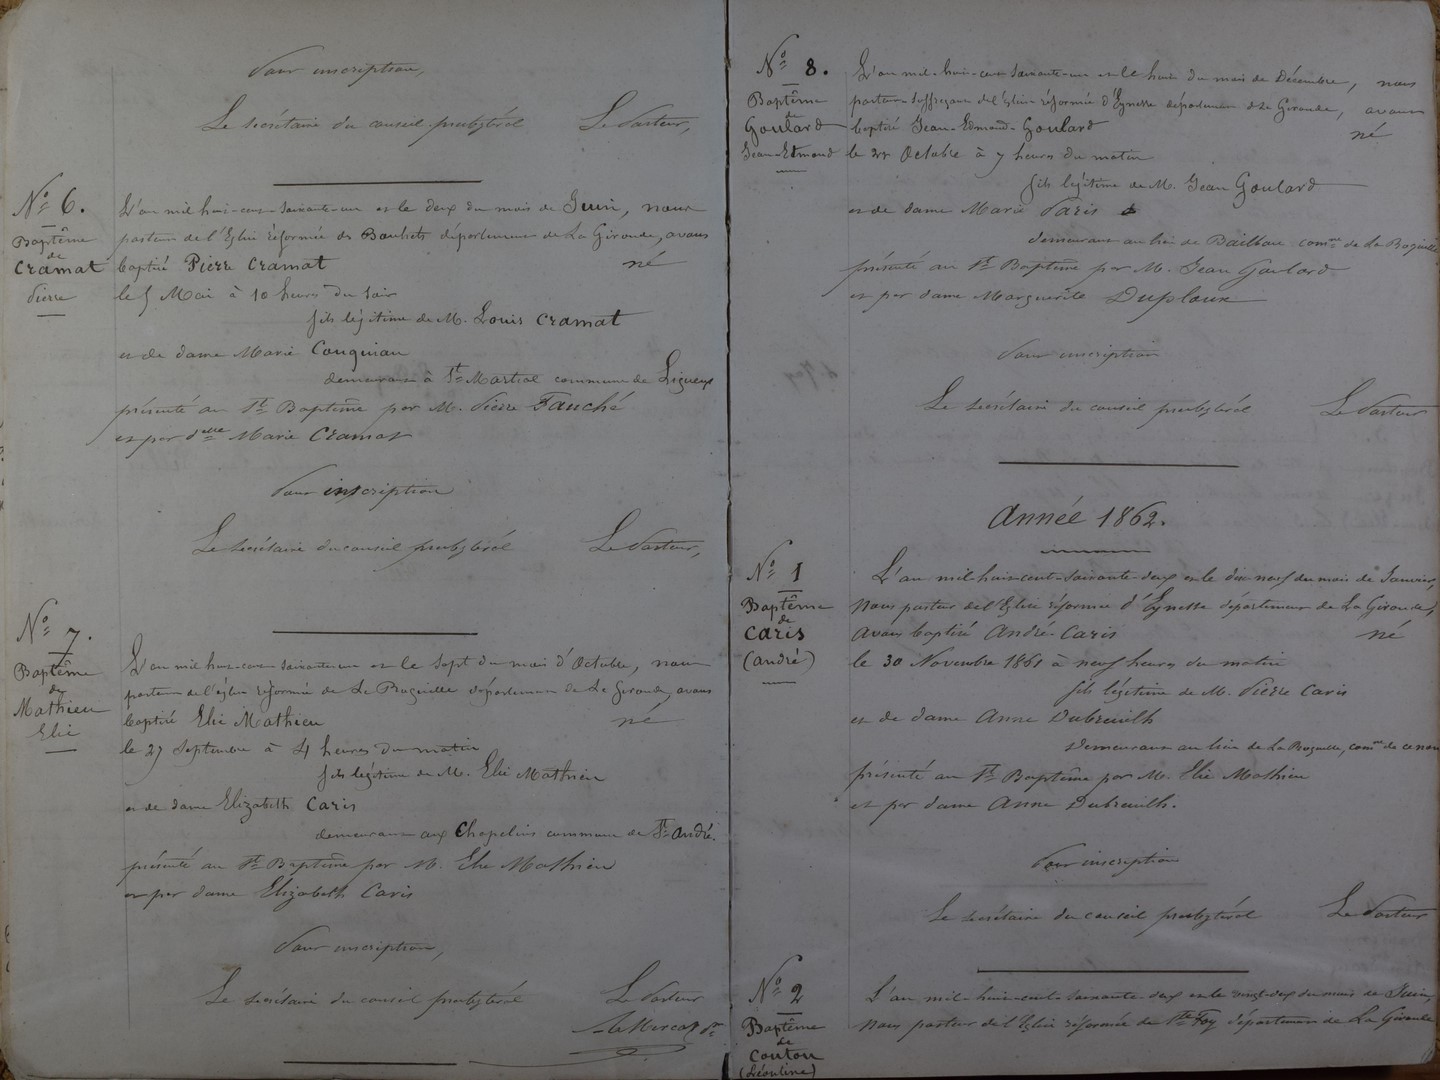 Pour inscription,
Le secrétaire du conseil presbytéral Le Pasteur,
No 6.
Baptême
de
Cramat
Pierre
L'an mil huit-cent-soixante-un et le deux du mois de Juin, nous
pasteur de l'Eglise réformée des Bauhets département de La Gironde, avons
baptisé Pierre Cramat né
le 5 Mai à 10 heures du soir
fils légitime de M. Louis Cramat
et de dame Marie Couquiau
demeurant à St Martial commune de Ligueux
présenté au St Baptême par M. Pierre Fauché
et par delle Marie Cramat
Pour inscription
Le secrétaire du conseil presbytéral Le Pasteur,
No 7.
Baptême
de
Mathieu
Elie
L'an mil huit-cent-soixante-un et le sept du mois d'Octobre, nous
pasteur de l'église réformée de La Roquille département de La Gironde, avons
baptisé Elie Mathieu né
le 27 Septembre à 4 heures du matin
fils légitime de M. Elie Mathieu
et de dame Elizabeth Caris
demeurant aux Chapelins commune de St André.
présenté au St Baptême par M. Elie Mathieu
et par dame Elizabeth Caris
Pour inscription,
Le secrétaire du conseil presbytéral Le Pasteur
No 8.
Baptême
de
Goulard
Jean-Edmond
L'an mil-huit-cent soixante-un et le huit du mois de Décembre, nous
pasteur-suffragant de l'Eglise réformée d'Eynesse département de La Gironde, avons
baptisé Jean-Edmond-Goulard né
le Octobre à 7 heures du matin
fils légitime de M. Jean Goulard
et de dame Marie Paris
demeurant au lieu de Baillau comne de La Roquille
présenté au St Baptême par M. Jean Goulard
et par dame Marguerite Duploux
Pour inscription
Le secrétaire du conseil presbytéral Le Pasteur
Année 1862.
No 1
Baptême
de
Caris
(André)
L'an mil huit-cent-soixante-deux et le dix neuf du mois de Janvier,
nous pasteur de l'Eglise réformée d'Eynesse département de La Gironde,
avons baptisé André Caris né
le 30 Novembre 1861 à neuf heures du matin
fils légitime de M. Pierre Caris
et de dame Anne Dubreuilh
demeurant au lieu de La Roquille, comne de ce nom
présenté au St Baptême par M. Elie Mathieu
et par dame Anne Dubreuilh.
Pour inscription
Le secrétaire du conseil presbytéral Le Pasteur
No 2
Baptême
de
Couton
(Léontine)
L'an mil-huit-cent-soixante-deux et le vingt-deux du mois de Juin,
nous pasteur de l'Eglise réformée de Ste Foy département de La Gironde